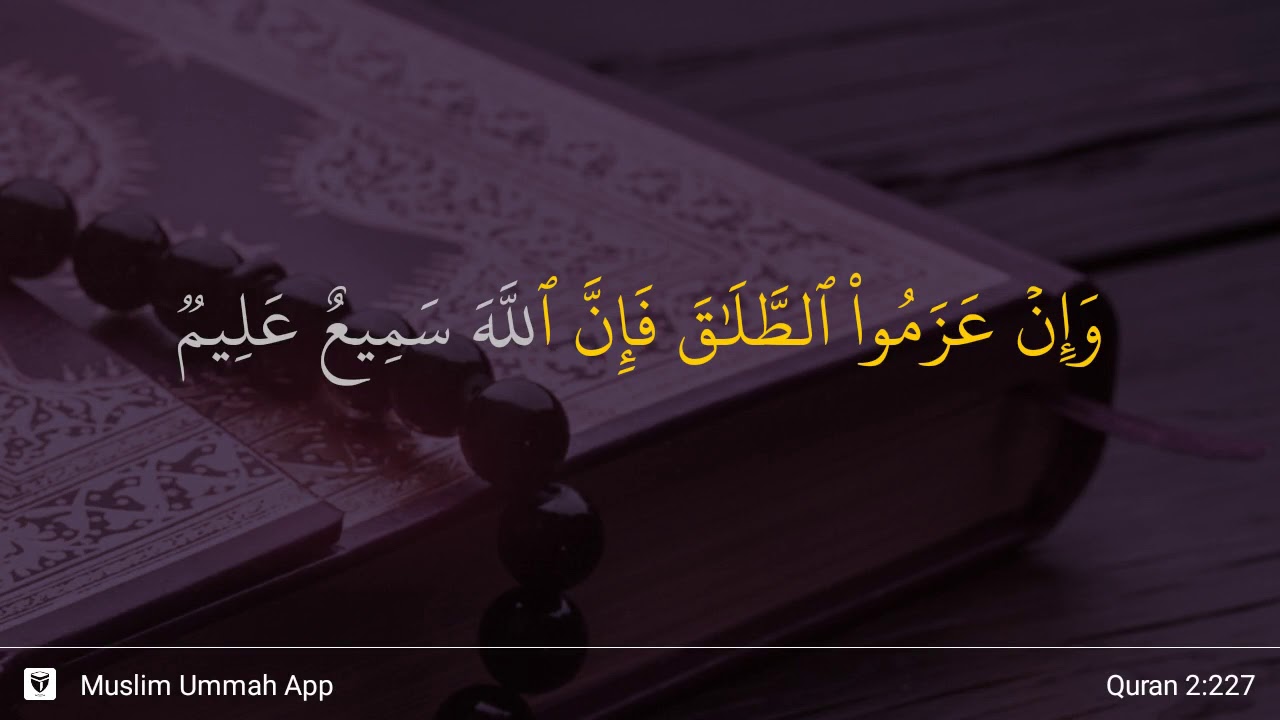 وَإِنۡ عَزَمُواْ ٱلطَّلَٰقَ فَإِنَّ ٱللَّهَ سَمِيعٌ عَلِيمٞ
Muslim Ummah App
Quran 2:227